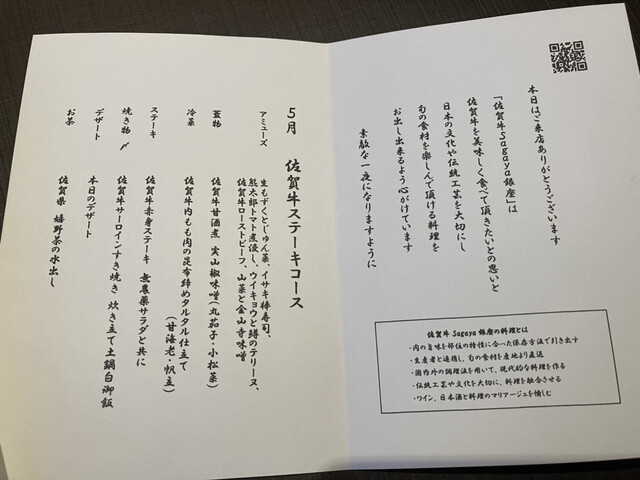 本日はご来店ありがとうございます
「佐賀牛Sagaya銀座」は
佐賀牛を美味しく食べて頂きたいとの思いと
日本の文化や伝統工芸を大切にし
旬の食材を楽しんで頂ける料理を
お出し出来るよう心がけています
素敵な一夜になりますように
佐賀牛 Sagaya 銀座の料理とは
・肉の旨味を部位の特性に合った保存方法で引き出す
・生産者と連携し、旬の食材を産地より直送
・国内外の調理法を用いて、現代的な料理を作る
・伝統工芸や文化を大切に、料理を融合させる
・ワイン、日本酒と料理のマリアージュを愉しむ
5月 佐賀牛ステーキコース
アミューズ 生もずくとじゅん菜、イサキ棒寿司、
熊太郎トマト煮優し、ウイキョウと鱒のテリーヌ、
佐賀牛ローストビーフ、山菜と金山寺味噌
蓋物 佐賀牛甘酒煮 実山椒味噌(丸茄子・小松菜)
冷菜 佐賀牛内もも肉の昆布締めタルタル仕立て
(甘海老・帆立)
ステーキ 佐賀牛赤身ステーキ 無農薬サラダと共に
焼き物 〆 佐賀牛サーロインすき焼き 炊き立て土鍋白御飯
デザート 本日のデザート
お茶 佐賀県 嬉野茶の水出し